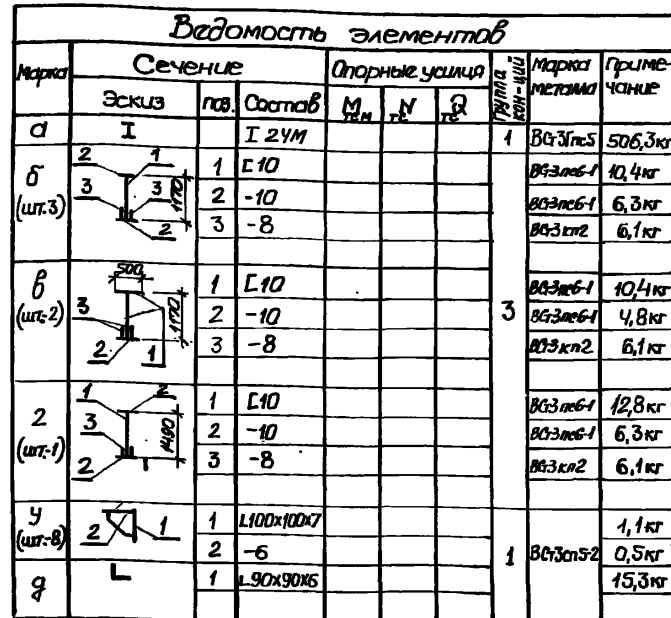 Ведомость элементов
Марка Сечение Опорные усилия Группа кон-ций Марка металла Примечание
Эскиз поз. Состав М тс.м N тс Q тс
а I I 24М 1 ВСт3Гпс5 506,3кг
б (шт.3) 2 1 3 3 2 1170 1 [10 ВСт3пс6-1 10,4кг
2 -10 ВСт3пс6-1 6,3кг
3 -8 ВСт3кп2 6,1кг
в (шт-2) 500 3 2 1 1170 1 [10 3 ВСт3пс6-1 10,4кг
2 -10 ВСт3пс6-1 4,8кг
3 -8 ВСт3кп2 6,1кг
г (шт-1) 1 2 3 2 1490 1 [10 ВСт3пс6-1 12,8кг
2 -10 ВСт3пс6-1 6,3кг
3 -8 ВСт3кп2 6,1кг
У (шт-8) 2 1 1 L100x100x7 1 ВСт3сп5-2 1,1кг
2 -6 0,5кг
д L 1 L90x90x6 15,3кг